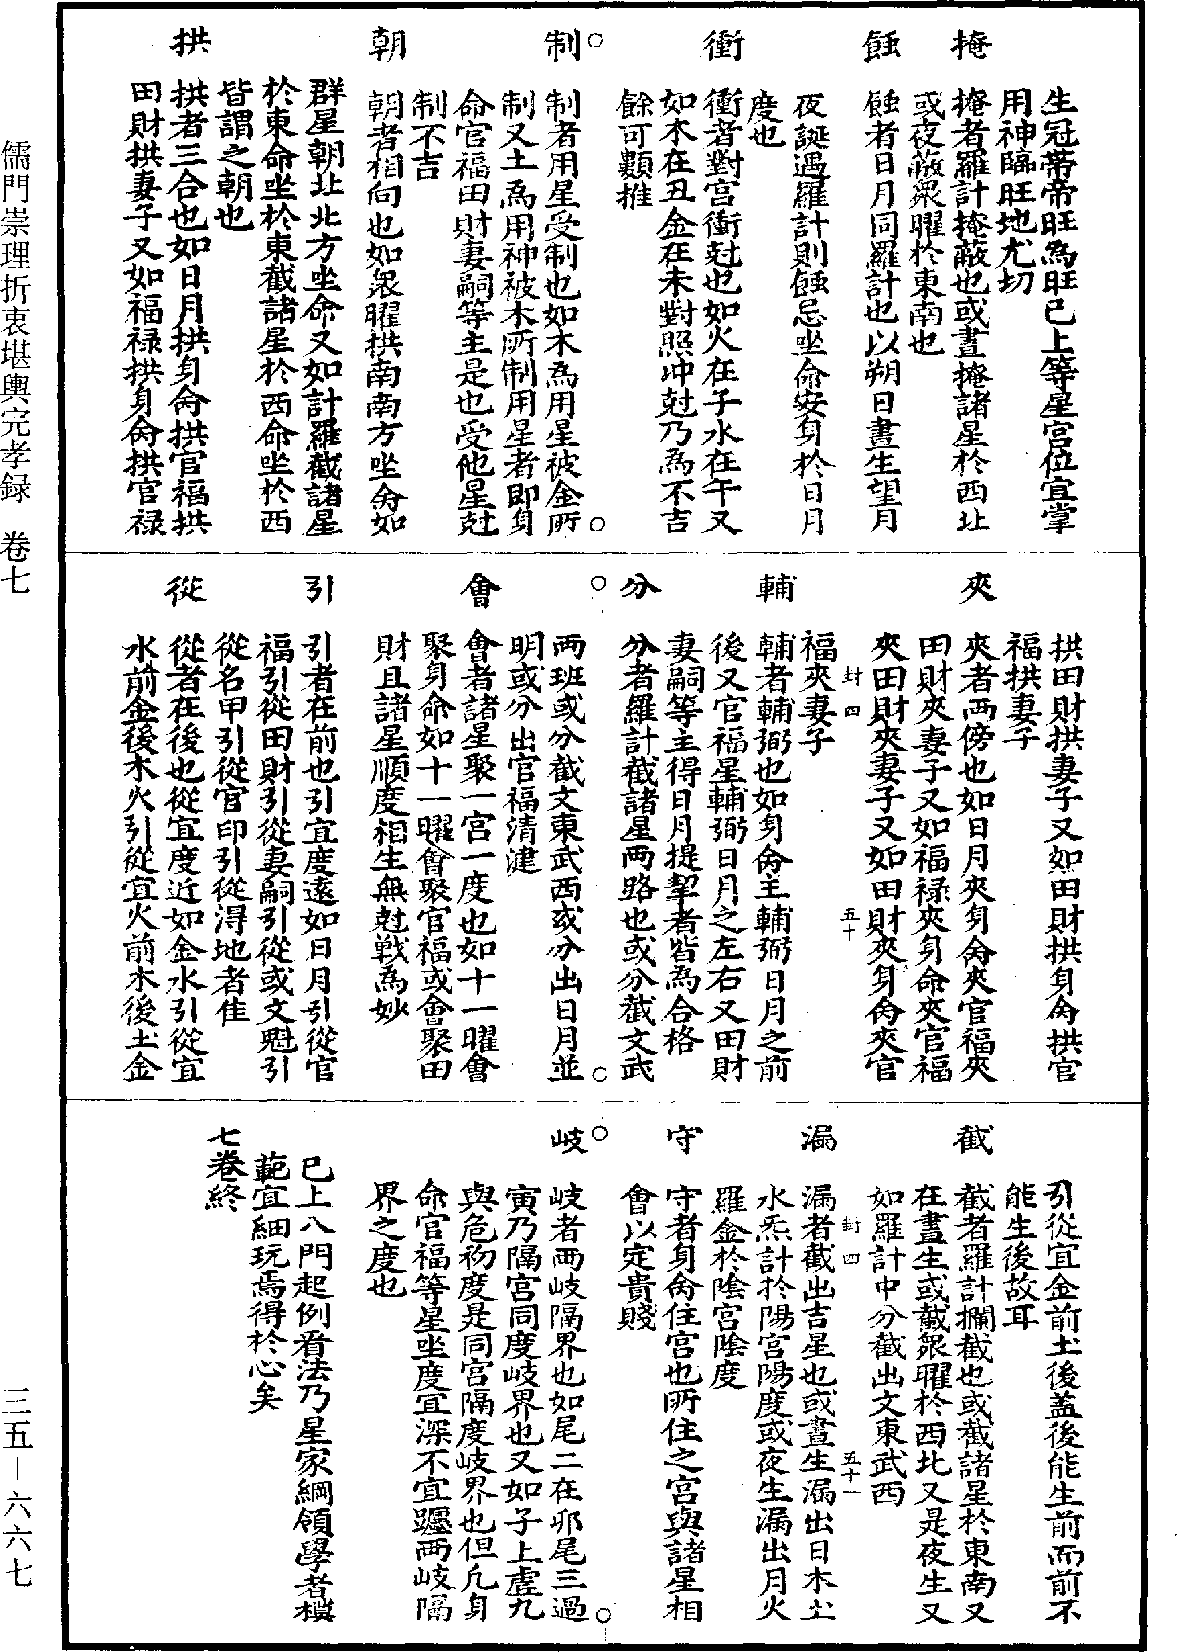 儒門崇理折衷堪輿完孝録　卷七
三五－六六七
生冠帶帝旺為旺已上等星宫位宜掌
用神臨旺地尤切
掩
掩者羅計掩蔽也或晝掩諸星於西北
或夜蔽衆曜於東南也
蝕
蝕者日月同羅計也以朔日晝生望月
夜誕遇羅計則蝕忌坐命安身於日月
度也
衝
衝者對宫衝尅也如火在子水在午又
如木在丑金在未對照冲尅乃為不吉
餘可類推
制
制者用星受制也如木為用星被金所
制又土為用神被木所制用星者即身
命官福田財妻嗣等主是也受他星尅
制不吉
朝
朝者相向也如衆曜拱南南方坐命如
群星朝北北方坐命又如計羅截諸星
於東命坐於東截諸星於西命坐於西
皆謂之朝也
拱
拱者三合也如日月拱身命拱官福拱
田財拱妻子又如福禄拱身命拱官禄
拱田財拱妻子又如田財拱身命拱官
福拱妻子
夾
夾者两傍也如日月夾身命夾官福夾
田財夾妻子又如福禄夾身命夾官福
夾田財夾妻子又如田財夾身命夾官
封四　五十
福夾妻子
輔
輔者輔弼也如身命主輔弼日月之前
後又官福星輔弼日月之左右又田財
妻嗣等主得日月提挈者皆為合格
分
分者羅計截諸星两路也或分截文武
两班或分截文東武西或分出日月並
明或分出官福清健
會
會者諸星聚一宫一度也如十一曜會
聚身命如十一曜會聚官福或會聚田
財且諸星順度相生無尅戰為妙
引
引者在前也引宜度遠如日月引從官
福引從田財引從妻嗣引從或文魁引
從名甲引從官印引從淂地者佳
從
從者在後也從宜度近如金水引從宜
水前金後木火引從宜火前木後土金
引從宜金前土後盖後能生前而前不
能生後故耳
截
截者羅計攔截也或截諸星於東南又
在晝生或截衆曜於西北又是夜生又
如羅計中分截出文東武西
封四　五十一
漏
漏者截出吉星也或晝生漏出日木土
水炁計於陽宫陽度或夜生漏出月火
羅金於陰宫陰度
守
守者身命住宫也所住之宫與諸星相
會以定貴賤
岐
岐者两岐隔界也如尾二在卯尾三過
寅乃隔宫同度岐界也又如子上虛九
與危初度是同宫隔度岐界也但凡身
命官福等星坐度宜深不宜躔两岐隔
界之度也
已上八門起例看法乃星家綱領學者模
範宜細玩焉得於心矣
七卷終